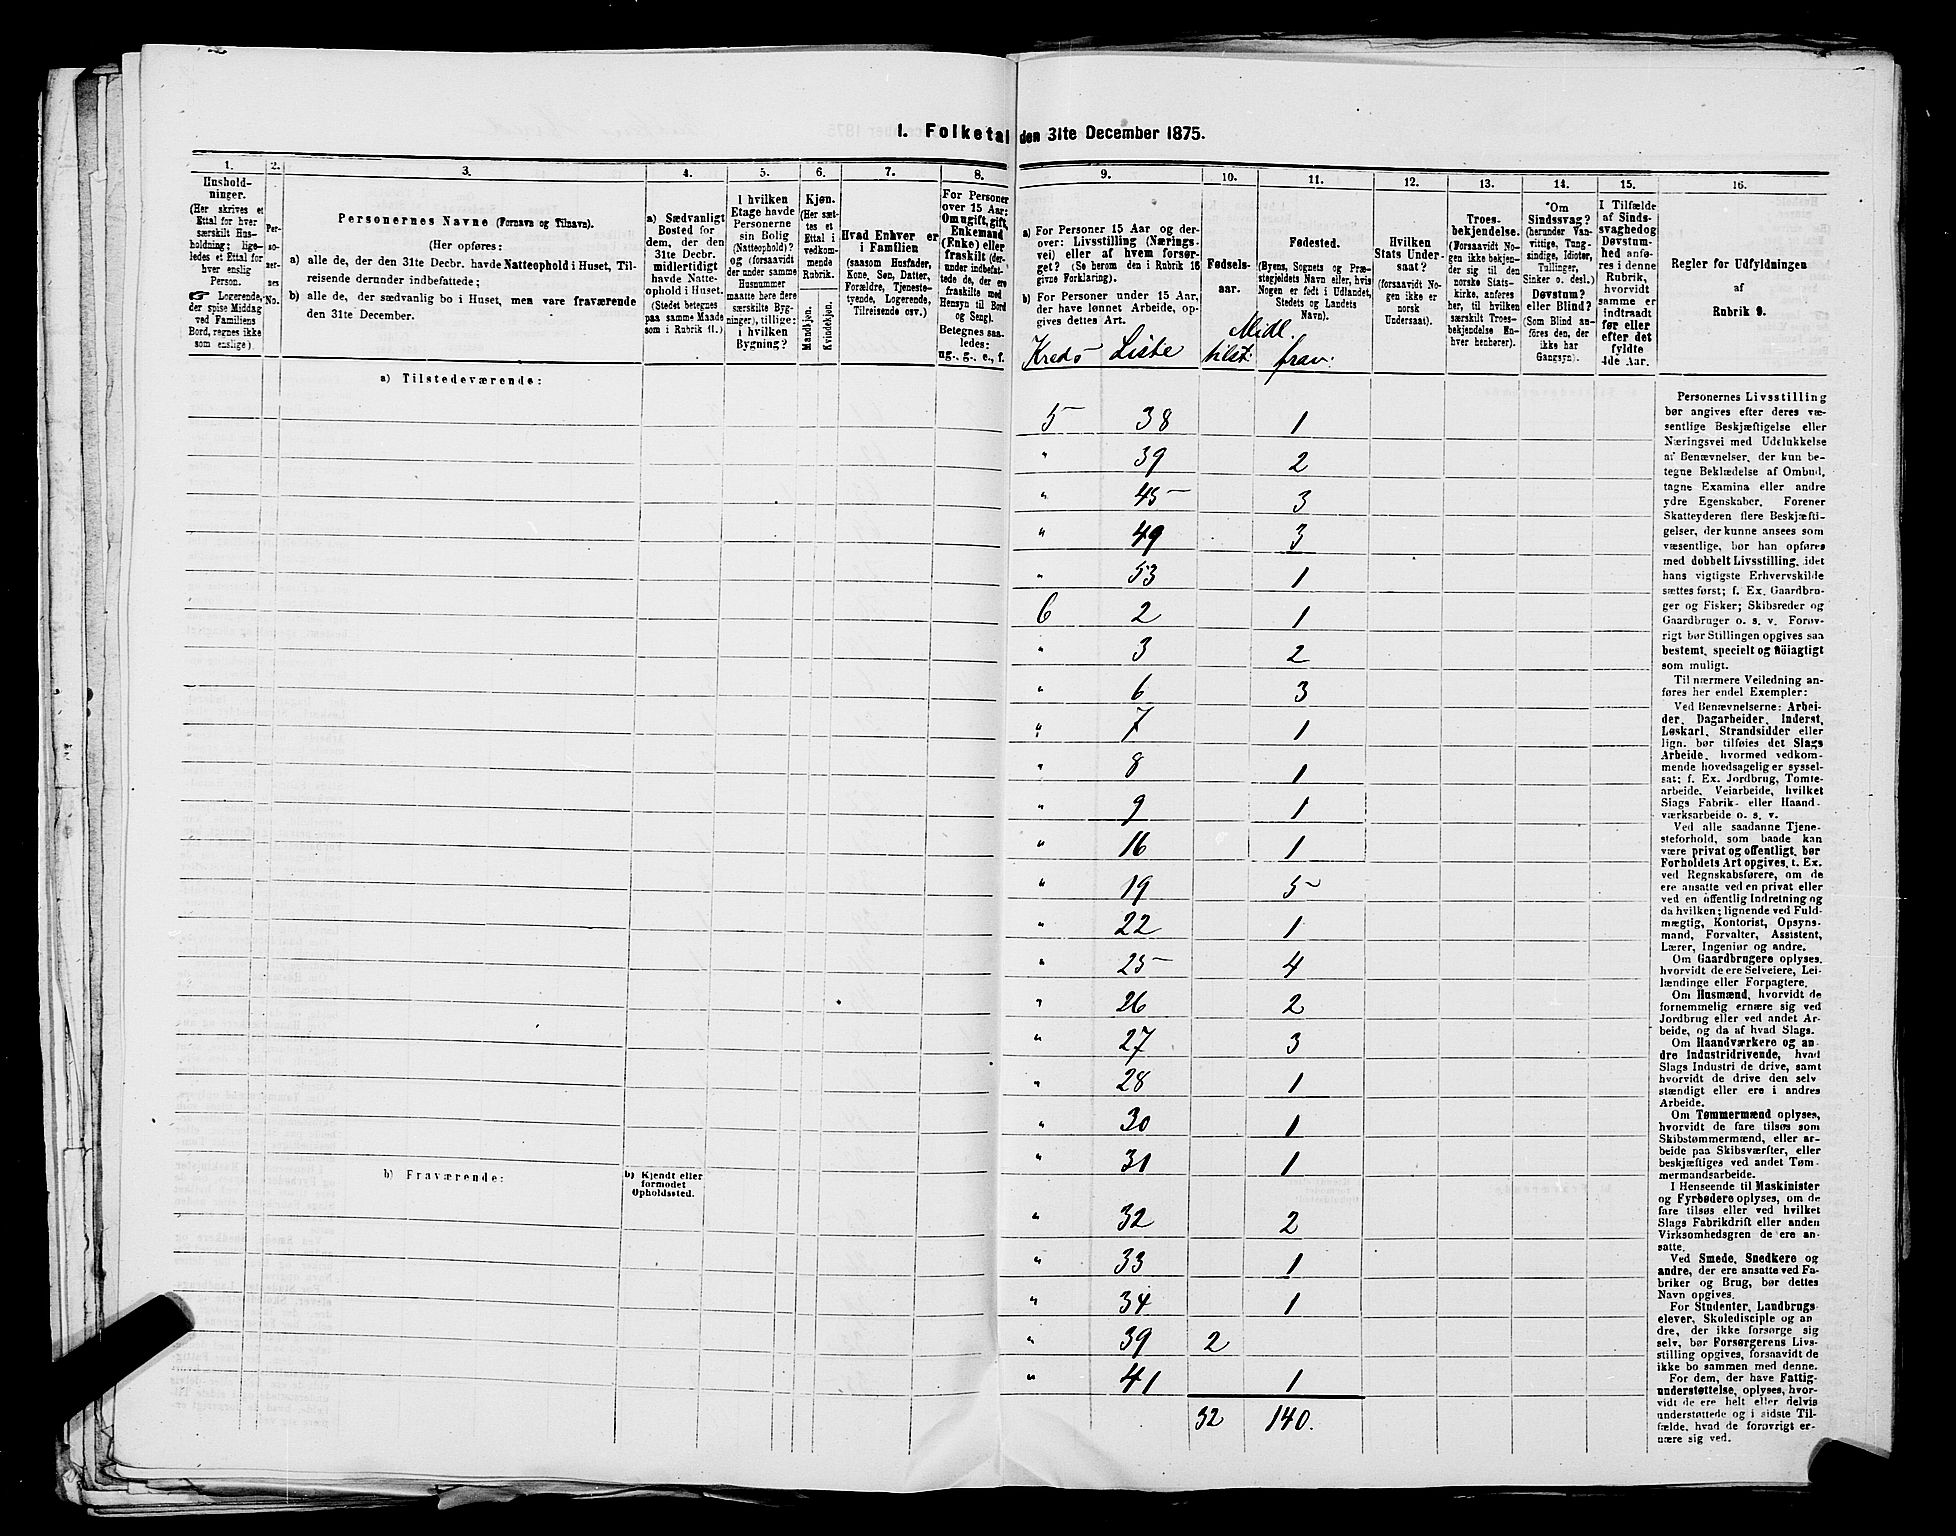 1. Folketal den 31te December 1875.
1.
Hushold-
ninger.
(Her skrives et
Ettal for hver
særskilt Hus-
holdning; lige-
ledes et Ettal for
hver enslig
Person.
☞ Logerende,
der spise Middag
ved Familiens
Bord, regnes ikke
som enslige.)
2.
Per-
so-
ner-
nes
No.
3.
Personernes Navne (Fornavn og Tilnavn).
(Her opføres:
a) alle de, der den 31te Decbr. havde Natteophold i Huset, Til-
reisende derunder indbefattede;
b) alle de, der sædvanlig bo i Huset, men vare fraværende
den 31te December.
4.
a) Sædvanligt
Bosted for
dem, der den
31te Decbr.
midlertidigt
havde Natte-
ophold i Huset.
(Stedet betegnes
paa samme Maade
som i Rubrik 11.)
5.
I hvilken
Etage havde
Personerne
sin Bolig
(Natteophold)?
og (forsaavidt
der under samme
Husnummer
maatte høre flere
særskilte Byg-
ninger), tillige:
i hvilken
Bygning?
6.
Kjøn.
(Her sæt-
tes et
Ettal i
vedkom-
mende
Rubrik.
Mandkjøn.
Kvindekjøn.
7.
Hvad Enhver er
i Familien
(saasom Husfader,
Kone, Søn, Datter,
Forældre, Tjeneste-
tyende, Logerende,
Tilreisende osv.)
8.
For Personer
over 15 Aar:
Om ugift, gift,
Enkemand
(Enke) eller
fraskilt (der-
under indbefat-
tede de, der ere
fraskilte med
Hensyn til Bord
og Seng).
Betegnes saa-
ledes:
ug., g., e., f.
9.
a) For Personer 15 Aar og der-
over: Livsstilling (Nærings-
vei) eller af hvem forsør-
get? (Se herom den i Rubrik 16
givne Forklaring).
b) For Personer under 15 Aar,
der have lønnet Arbeide, op-
gives dettes Art.
10.
Fødsels-
aar.
11.
Fødested.
(Byens, Sognets og Præ-
stegjeldets Navn eller, hvis
Nogen er født i Udlandet,
Stedets og Landets
Navn).
12.
Hvilken
Stats Under-
saat?
(forsaavidt No-
gen ikke er
norsk
Undersaat).
13.
Troes-
bekjendelse.
(Forsaavidt No-
gen ikke bekjen-
der sig til den
norske Stats-
kirke, anføres
her, til hvilken
særskilt Troes-
bekjendelse En-
hver henhører).
14.
Om
Sindssvag?
(herunder Van-
vittige, Tung-
sindige, Idioter,
Tullinger,
Sinker o. desl.)
Døvstum?
eller Blind?
(Som Blind an-
føres den, der
ikke har
Gangsyn).
15.
I Tilfælde
af Sinds-
svaghed og
Døvstum-
hed anfø-
res i denne
Rubrik,
hvorvidt
samme er
indtraadt
før eller
efter det
fyldte
4de Aar.
16.
Regler for Udfyldningen
af
Rubrik 9.
Midl.
Kreds Liste tilst: frav:
a) Tilstedeværende:
5 38 1
" 39 2
" 45 3
" 49 3
" 53 1
6 2 1
" 3 2
" 6 3
" 7 1
" 8 1
" 9 1
" 16 1
" 19 5
" 22 1
" 25 4
" 26 2
" 27 3
" 28 1
" 30 1
" 31 1
b) Fraværende:
b) Kjendt eller
formodet
Opholdssted.
" 32 2
" 33 1
" 34 1
" 39 2
" 41 1
32 140.
Personernes Livsstilling
bør angives efter deres væ-
sentlige Beskjæftigelse eller
Næringsvei med Udelukkelse
af Benævnelser, der kun be-
tegne Beklædelse af Ombud,
tagne Examina eller andre
ydre Egenskaber. Forener
Skatteyderen flere Beskjæfti-
gelser, der kunne ansees som
væsentlige, bør han opføres
med dobbelt Livsstilling, idet
hans vigtigste Erhvervskilde
sættes først; f. Ex. Gaardbru-
ger og Fisker; Skibsreder og
Gaardbruger o. s. v. Forøv-
rigt bør Stillingen opgives saa
bestemt, specielt og nøiagtigt
som muligt.
Til nærmere Veiledning an-
føres her endel Exempler:
Ved Benævnelserne: Arbei-
der, Dagarbeider, Inderst,
Løskarl, Strandsidder eller
lign. bør tilføies det Slags
Arbeide, hvormed vedkom-
mende hovedsagelig er syssel-
sat; f. Ex. Jordbrug, Tomte-
arbeide, Veiarbeide, hvilket
Slags Fabrik- eller Haand-
værksarbeide o. s. v.
Ved alle saadanne Tjene-
steforhold, som baade kan
være privat og offentligt, bør
Forholdets Art opgives, t. Ex.
ved Regnskabsførere, om de
ere ansatte ved en privat eller
ved en offentlig Indretning og
da hvilken; lignende ved Fuld-
mægtig, Kontorist, Opsyns-
mand, Forvalter, Assistent,
Lærer, Ingeniør og andre.
Om Gaardbrugere oplyses,
hvorvidt de ere Selveiere, Lei-
lændinge eller Forpagtere.
Om Husmænd, hvorvidt de
fornemmelig ernære sig ved
Jordbrug eller ved andet Ar-
beide, og da af hvad Slags.
Om Haandværkere og an-
dre Industridrivende, hvad
Slags Industri de drive, samt
hvorvidt de drive den selv-
stændigt eller ere i andres
Arbeide.
Om Tømmermænd oplyses,
hvorvidt de fare tilsøs som
Skibstømmermænd, eller ar-
beide paa Skibsværfter, eller
beskjæftiges ved andet Tøm-
mermandsarbeide.
I Henseende til Maskinister
og Fyrbødere oplyses, om de
fare tilsøs eller ved hvilket
Slags Fabrikdrift eller anden
Virksomhedsgren de ere an-
satte.
Ved Smede, Snedkere og
andre, der ere ansatte ved Fa-
briker og Brug, bør dettes
Navn opgives.
For Studenter, Landbrugs-
elever, Skoledisciple og an-
dre, der ikke forsørge sig
selv, bør Forsørgerens Livs-
stilling opgives, forsaavidt de
ikke bo sammen med denne.
For dem, der have Fattig-
understøttelse, oplyses, hvor-
vidt de ere helt eller delvis
understøttede og i sidste Til-
fælde, hvad de forøvrigt er-
nære sig ved.